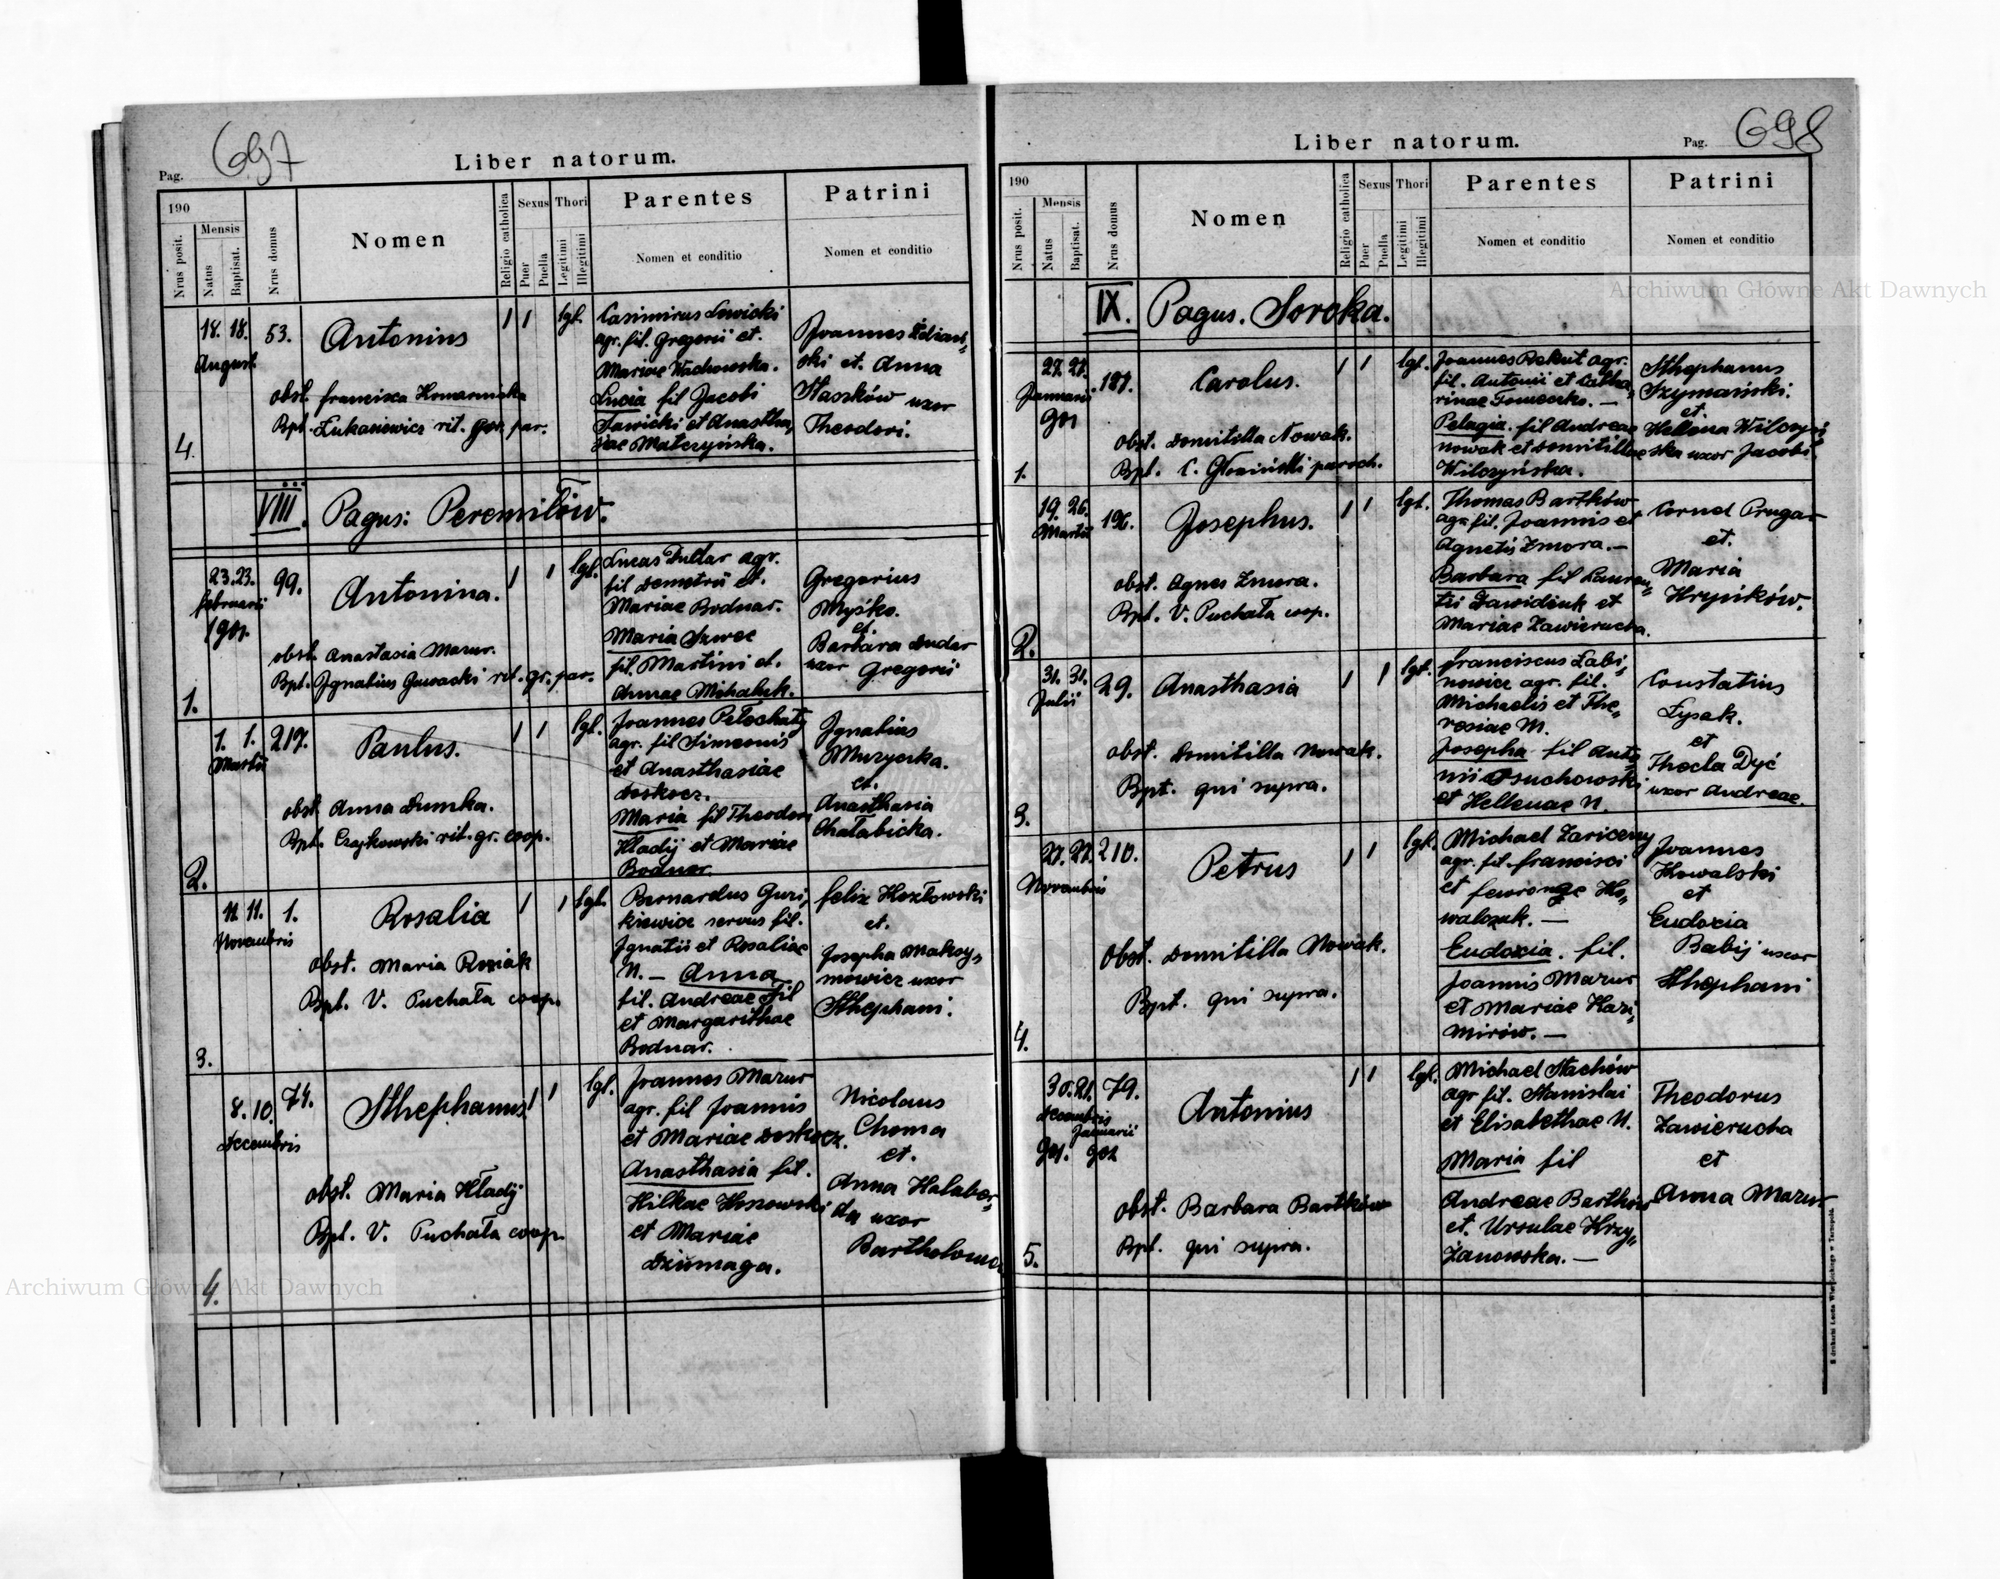 697
Pag.
Liber natorum.
190
Nrus posit.
Mensis
Natus
Baptisat.
Nrus domus
Nomen
Religio catholica
Sexus
Puer
Puella
Thori
Legitimi
Illegitimi
Parentes
Nomen et conditio
Patrini
Nomen et conditio
4.
18. 18.
August
53.
Antonius
obst. Francisca
Bpt. Łukasiewicz rit. gr. par.
1 1
lgt.
Casimirus Lewicki
agr. fil. Gregorii et.
Mariae Wachowska.
Lucia fil Jacobi
Sawicki et Anastha,
siae Matczyńska.
Joannes
ski et. Anna
Staszków uxor
Theodori.
VIII. Pagus: Peremilów.
1.
23. 23.
Februarii
1901.
99.
Antonina.
obst. Anastasia Mazur.
Bpt. Ignatius rit. gr. par.
1 1
lgt.
Lucas agr.
fil Demetrii et.
Mariae Bodnar.
Maria Szwec
fil. Martini et.
Annae Michaluk.
Gregorius
Myśko.
et.
Barbara Dudar
uxor Gregorii
2.
1. 1.
Martii
217.
Paulus.
obst. Anna Dumka.
Bpt. Czajkowski rit. gr. coop.
1 1
lgt.
Joannes Pełechatý
agr. fil Simeonis
et Anasthasiae
Doskocz.
Maria fil Theodori
Hładij et Mariae
Bodnar.
Ignatius
Muzyczka.
et.
Anasthasia
Chałabicka.
3.
11. 11.
Novembris
1.
Rosalia
obst. Maria Rosiak
Bpt. V. Puchała coop.
1 1
lgt.
Bernardus Guzi,
kiewicz servus fil.
Ignatii et Rosaliae
N. — Anna
fil. Andreae Fil
et Margarithae
Bodnar.
Felix Kozłowski
et.
Josepha Maksy,
mowicz uxor
Sthephani.
4.
8. 10.
Decembris
74.
Sthephanus
obst. Maria Hładij
Bpt. V. Puchała coop.
1 1
lgt.
Joannes Mazur
agr. fil Joannis
et Mariae Doskocz.
Anasthasia fil.
Hilkae
et Mariae
Dziomaga.
Nicolaus
Choma
et.
Anna Halabor,
da uxor
Bartholomei
Liber natorum.
Pag.
698
190
Nrus posit.
Mensis
Natus
Baptisat.
Nrus domus
Nomen
Religio catholica
Sexus
Puer
Puella
Thori
Legitimi
Illegitimi
Parentes
Nomen et conditio
Patrini
Nomen et conditio
IX. Pagus. Soroka.
1.
27. 27.
Januarii
901
187.
Carolus.
obst. Domitilla Nowak.
Bpt. C. Głosiński paroch.
1 1
lgt.
Joannes Rekut agr.
fil. Antonii et Catha,
rinae Tomeczko. —
Pelagia. fil Andreae
Nowak et Domitillae
Wilczyńska.
Sthephanus
Szymański.
et.
Hellena Wilczyń,
ska uxor Jacobi.
2.
19. 26.
Martii
196.
Josephus.
obst. Agnes Zmora.
Bpt. V. Puchała coop.
1 1
lgt.
Thomas Bartków
agr. fil. Joannis et
Agnetis Zmora. —
Barbara fil Lauren,
tii Dawidiuk et
Mariae Zawierucha.
Cornel Prugar
et.
Maria
Hryńków.
3.
31. 31.
Julii
29.
Anasthasia
obst. Domitilla Nowak.
Bpt. qui supra.
1 1
lgt.
Franciscus Łabi,
nowicz agr. fil.
Michaelis et The,
resiae N.
Josepha fil Anto,
nii Osuchowski
et Hellenae N.
Constatius
Łysak.
et
Thecla Dyć
uxor Andreae.
4.
27. 27.
Novembris
210.
Petrus
obst. Domitilla Nowak.
Bpt. qui supra.
1 1
lgt.
Michael Zariczny
agr. fil. Francisci
et Ko,
walczuk. —
Eudoxia. fil.
Joannis Mazur
et Mariae Kazi,
mirów. —
Joannes
Kowalski
et
Eudoxia
Babij uxor
Sthephani
5.
30. 21.
Decembris
Januarii
901. 902
79.
Antonius
obst. Barbara Bartków
Bpt. qui supra.
1 1
lgt.
Michael Stachów
agr fil. Stanislai
et Elisabethae N.
Maria fil
Andreae Bartków
et. Ursulae Krzy,
żanowska. —
Theodorus
Zawierucha
et
Anna Mazur
Z drukarni Leona Wierzbickiego w Tarnopolu.
Archiwum Główne Akt Dawnych
Archiwum Główne Akt Dawnych